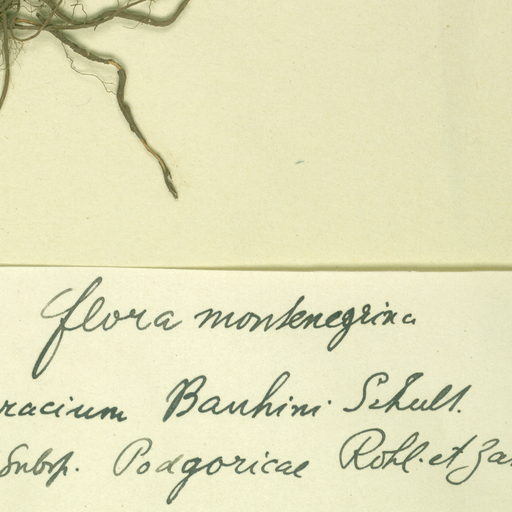 flora montenegrina
racium Bauhini Schult.
Subsp. Podgoricae Rohl. et Za